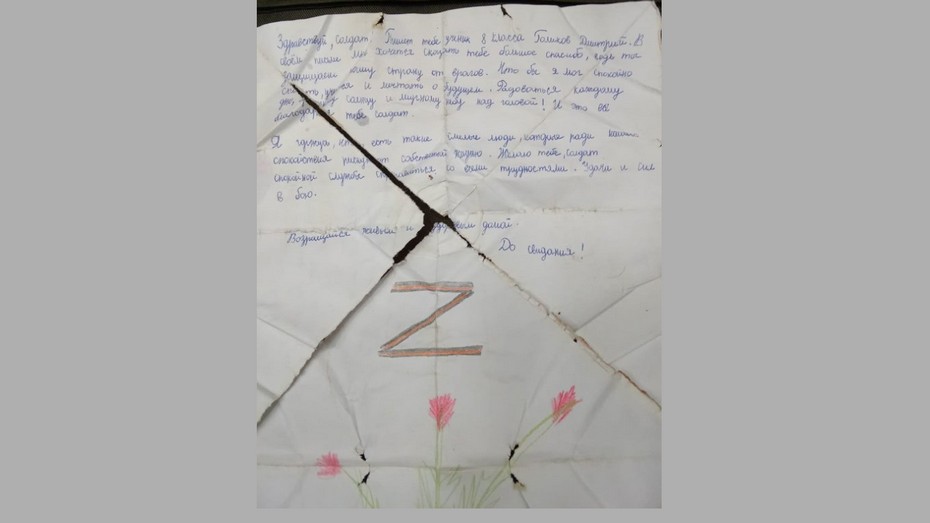 Здравствуй, солдат. Пишет тебе ученик 8 класса Голиков Дмитрий. В
своём письме мне хочется сказать тебе большое спасибо, ведь ты
защищаешь нашу страну от врагов. Что бы я мог спокойно
и мечтать о будущем. Радоваться каждому
и мирному небу над головой! И это всё
благодаря тебе солдат.
Я горжусь, что есть такие смелые люди, которые ради нашего
спокойствия рискуют собственной жизнью. Желаю тебе, солдат
спокойной службы справиться со всеми трудностями. Удачи и сил
в бою.
Возращайся живым и здоровым домой.
До свидания!
Z